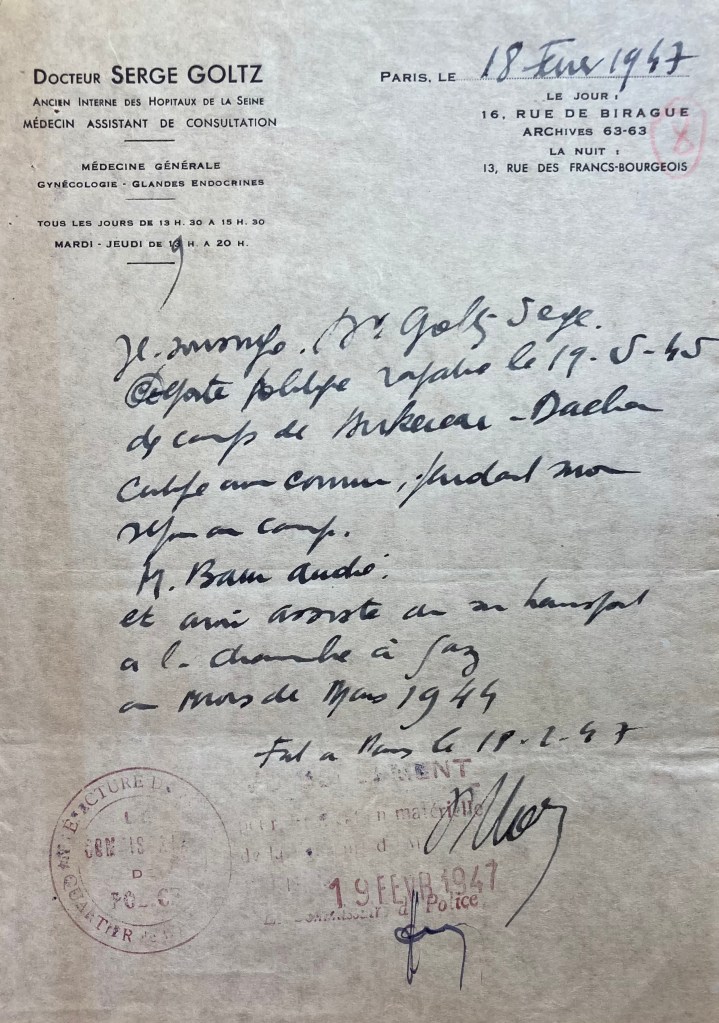 DOCTEUR SERGE GOLTZ
ANCIEN INTERNE DES HOPITAUX DE LA SEINE
MÉDECIN ASSISTANT DE CONSULTATION
MÉDECINE GÉNÉRALE
GYNÉCOLOGIE - GLANDES ENDOCRINES
TOUS LES JOURS DE 13 H. 30 A 15 H. 30
MARDI - JEUDI DE 19 H. A 20 H.
PARIS, LE 18 Fevr 1947
LE JOUR :
16, RUE DE BIRAGUE
ARCHIVES 63-63
LA NUIT :
13, RUE DES FRANCS-BOURGEOIS
Je soussigné. Dr. Goltz Serge.
Déporté politique rapatrié le 19-5-45
de camps de Birkenau - Dachau
Certifie avoir connu, pendant mon
séjour au camp.
M. Baur André.
et avoir assisté au son transport
a la chambre à gaz
au mois de Mars 1944
Fait a Paris le 18-2-47
PRÉFECTURE DE
LE
COMMISSAIRE
DE
POLICE
QUARTIER
matérielle
19 FEVR 1947
de Police